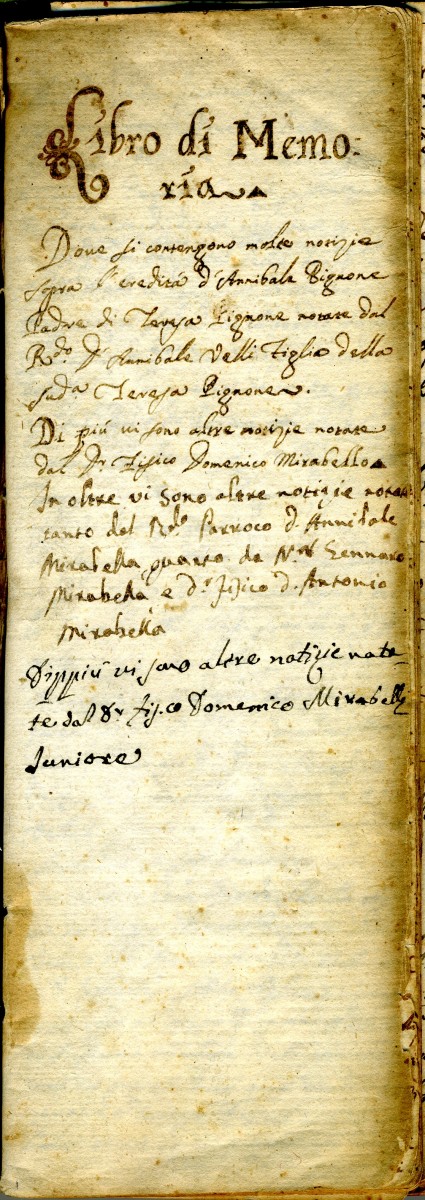 Libro di Memo:
ria
Dove si contengono molte notizie
sopra l'eredità d'Annibale Pignone
Padre di Teresa Pignone notate dal
R.do D. Annibale Velli Figlio della
sud.a Teresa Pignone.
Di più vi sono altre notizie notate
dal Dr Fisico Domenico Mirabello
In oltre vi sono altre notizie notate
tanto dal R.do Parroco d. Annibale
Mirabella quanto da Nr. Gennaro
Mirabella e d.r Fisico d. Antonio
Mirabella
Dippiù vi sono altre notizie nota-
te dal Dr Fisico Domenico Mirabelli
Juniore